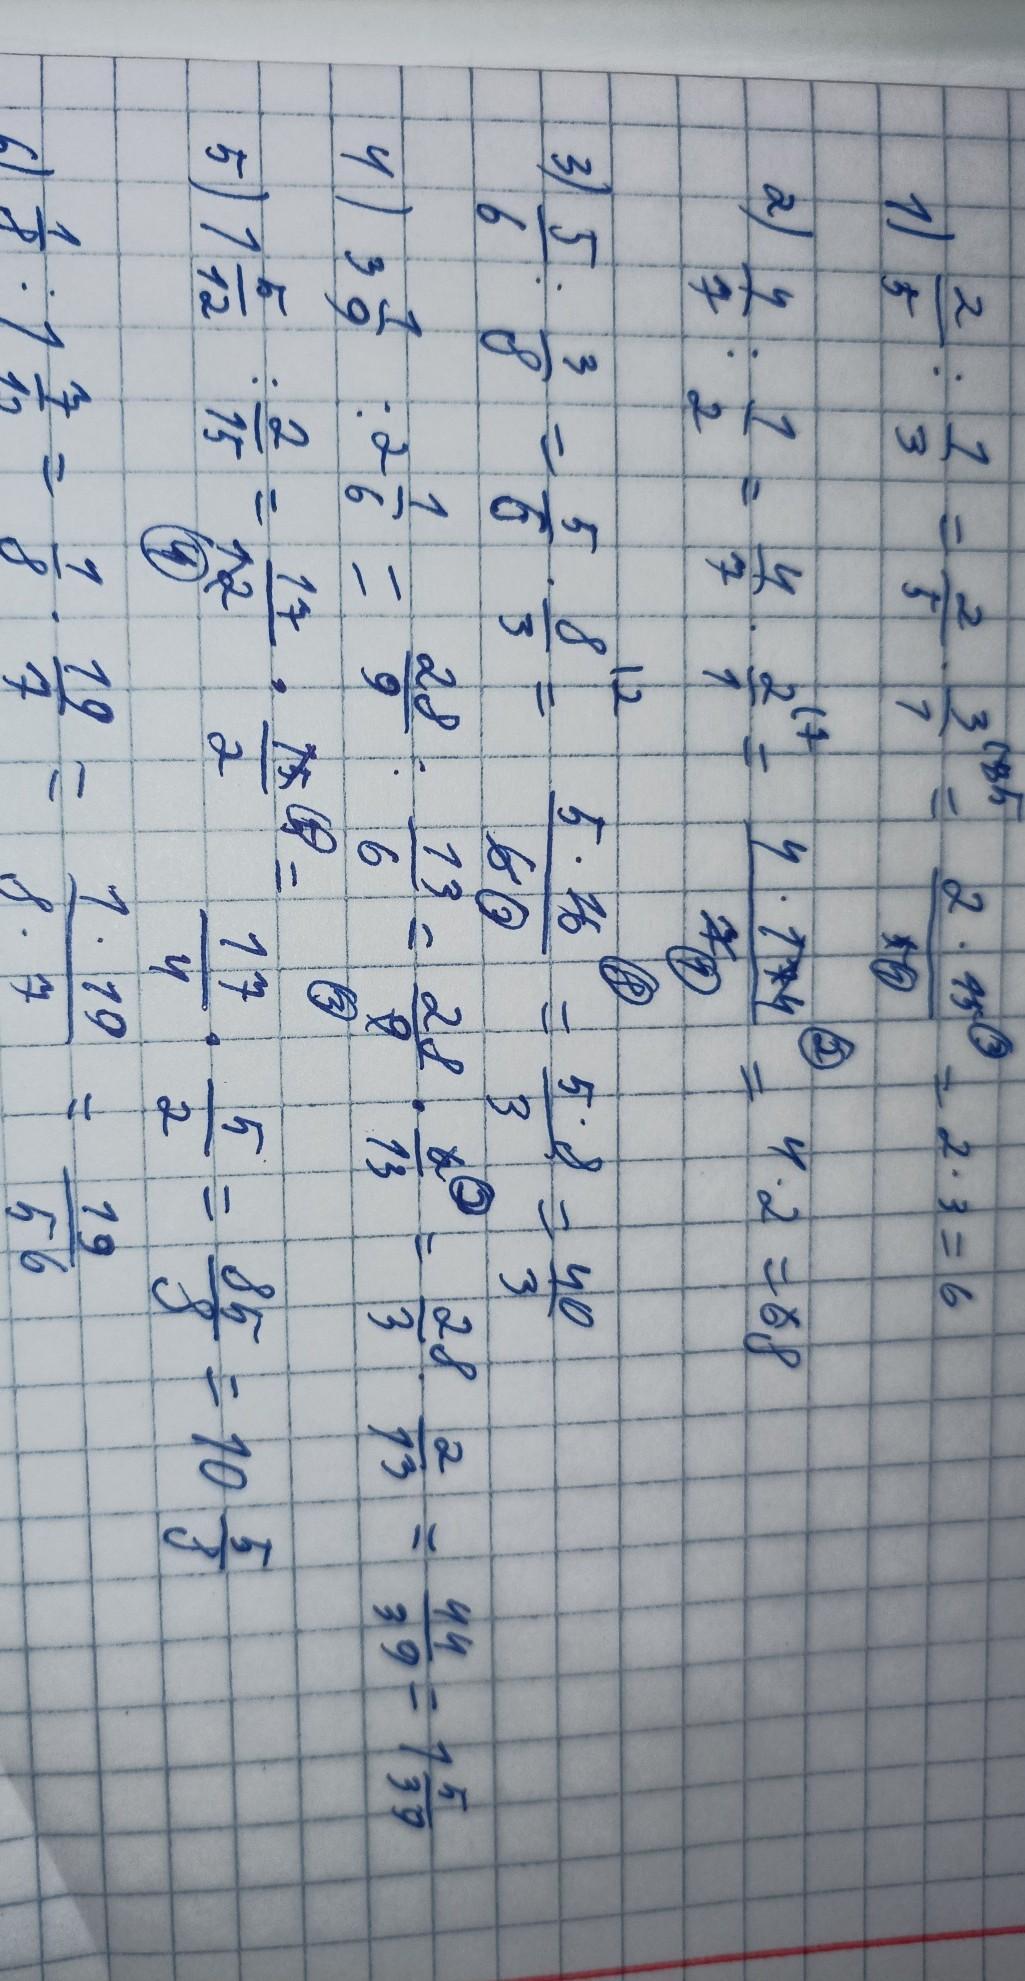 1) 2/5 : 1/3 = 2/5 · 3/1 (5 = 2 · 15 (3) / = 2 · 3 = 6
2) 4/7 : 1/2 = 4/7 · 2/1 (7 = 4 · 14 (2) / 7 (1) = 4 · 2 = 8
3) 5/6 : 3/8 = 5/6 · 8/3 (2 = 5 · 16 (8) / 6 (3) = 5 · 8 / 3 = 40/3
4) 3 1/9 : 2 1/6 = 28/9 : 13/6 = 28/9 (3) · 6 (2) / 13 = 28/3 · 2/13 = 44/39 = 1 5/39
5) 1 5/12 : 2/15 = 17/12 (4) · 15 (5) / 2 = 17/4 · 5/2 = 85/8 = 10 5/8
6) 1/8 : 1 7/12 = 1/8 · 19/7 = 1 · 19 / 8 · 7 = 19/56